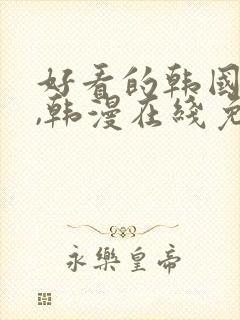 好看的韩国
,韩漫在线免
永樂皇帝